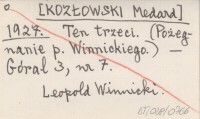 [KOZŁOWSKI Medard]
1927. Ten trzeci. (Pożeg-
nanie p. Winnickiego.) —
Góral 3, nr 7.
Leopold Winnicki.